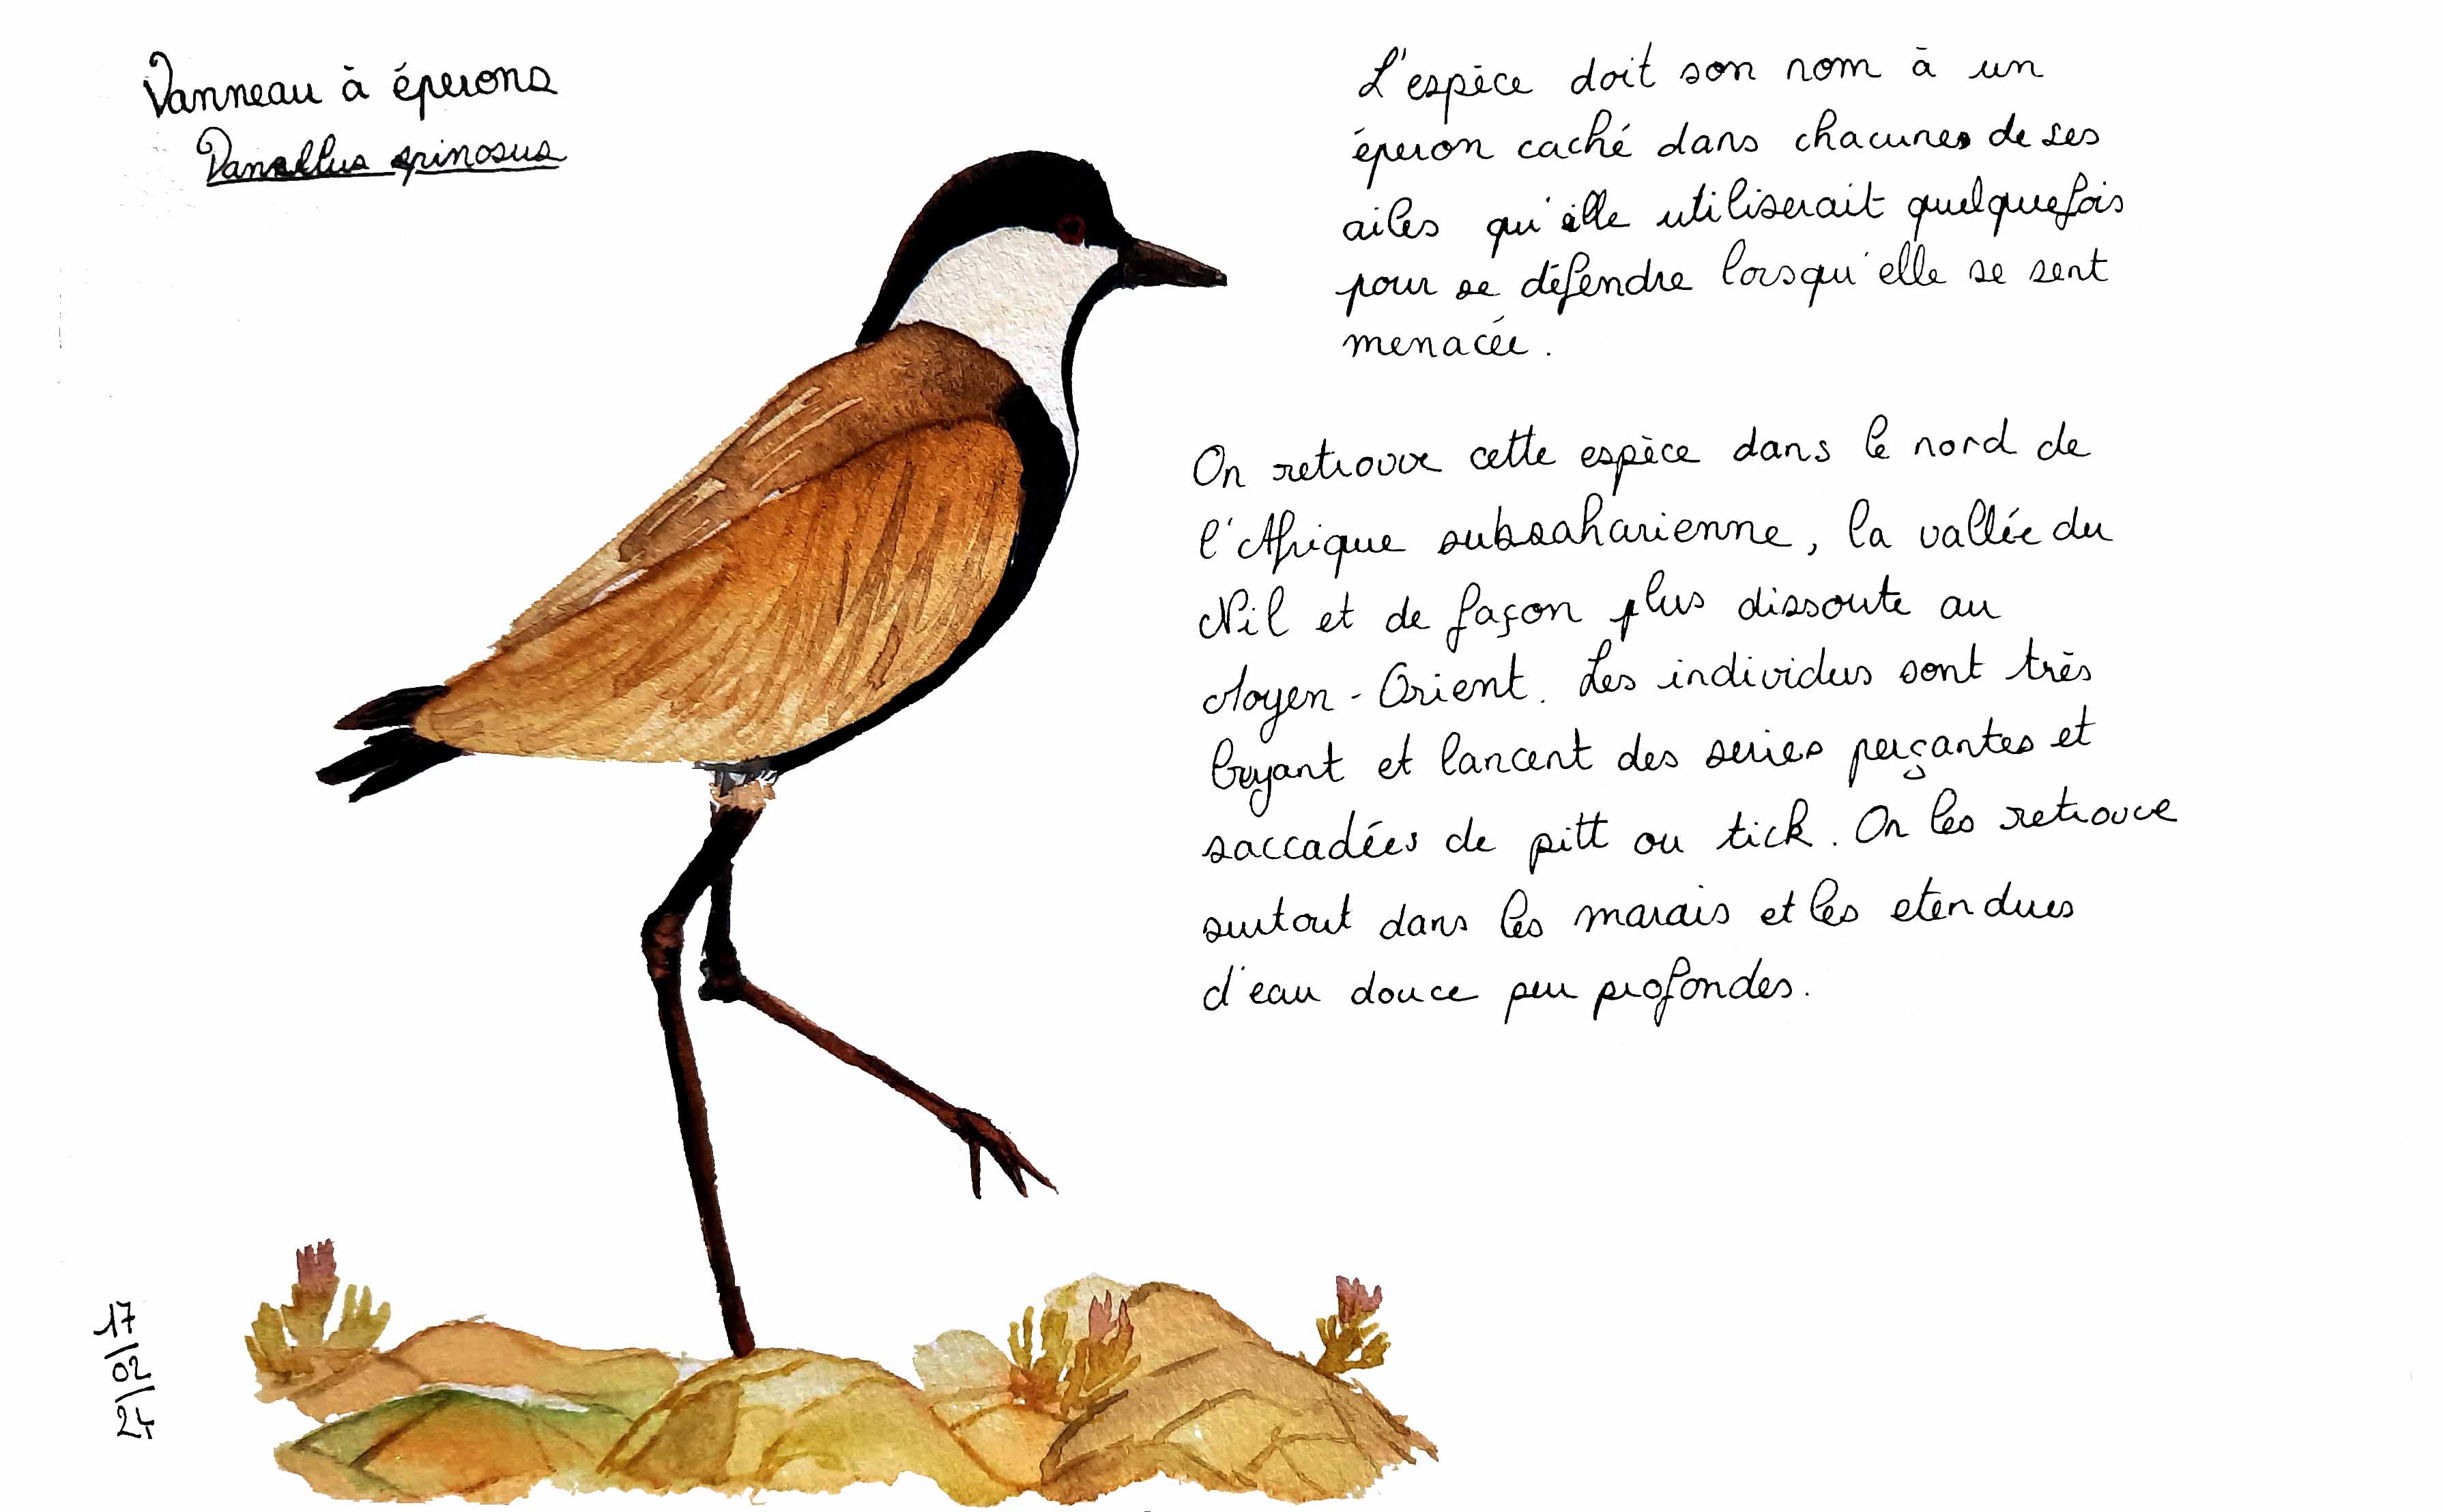 Vanneau à éperons
Vanellus spinosus
L'espèce doit son nom à un
éperon caché dans chacunes de ses
ailes qu'elle utiliserait quelquefois
pour se défendre lorsqu'elle se sent
menacée.
On retrouve cette espèce dans le nord de
l'Afrique subsaharienne, la vallée du
Nil et de façon plus dissoute au
Moyen-Orient. Les individus sont très
bruyant et lancent des series perçantes et
saccadées de pitt ou tick. On les retrouve
surtout dans les marais et les etendues
d'eau douce peu profondes.
17/02/24